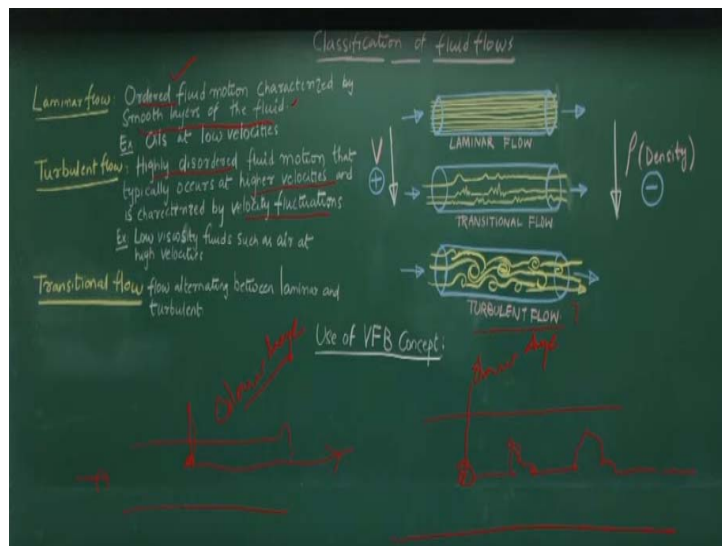 Classification of fluid flows
Laminar flow: Ordered fluid motion characterized by
smooth layers of the fluid.
Ex Oils at low velocities
Turbulent flow: Highly disordered fluid motion that
typically occurs at higher velocities and
is charectirized by velocity fluctuations
Ex: Low viscosity fluids such as air at
high velocities
Transitional flow flow alternating between laminar and
turbulent
LAMINAR FLOW
V
+
ρ (Density)
−
TRANSITIONAL FLOW
TURBULENT FLOW
Use of VFB Concept: